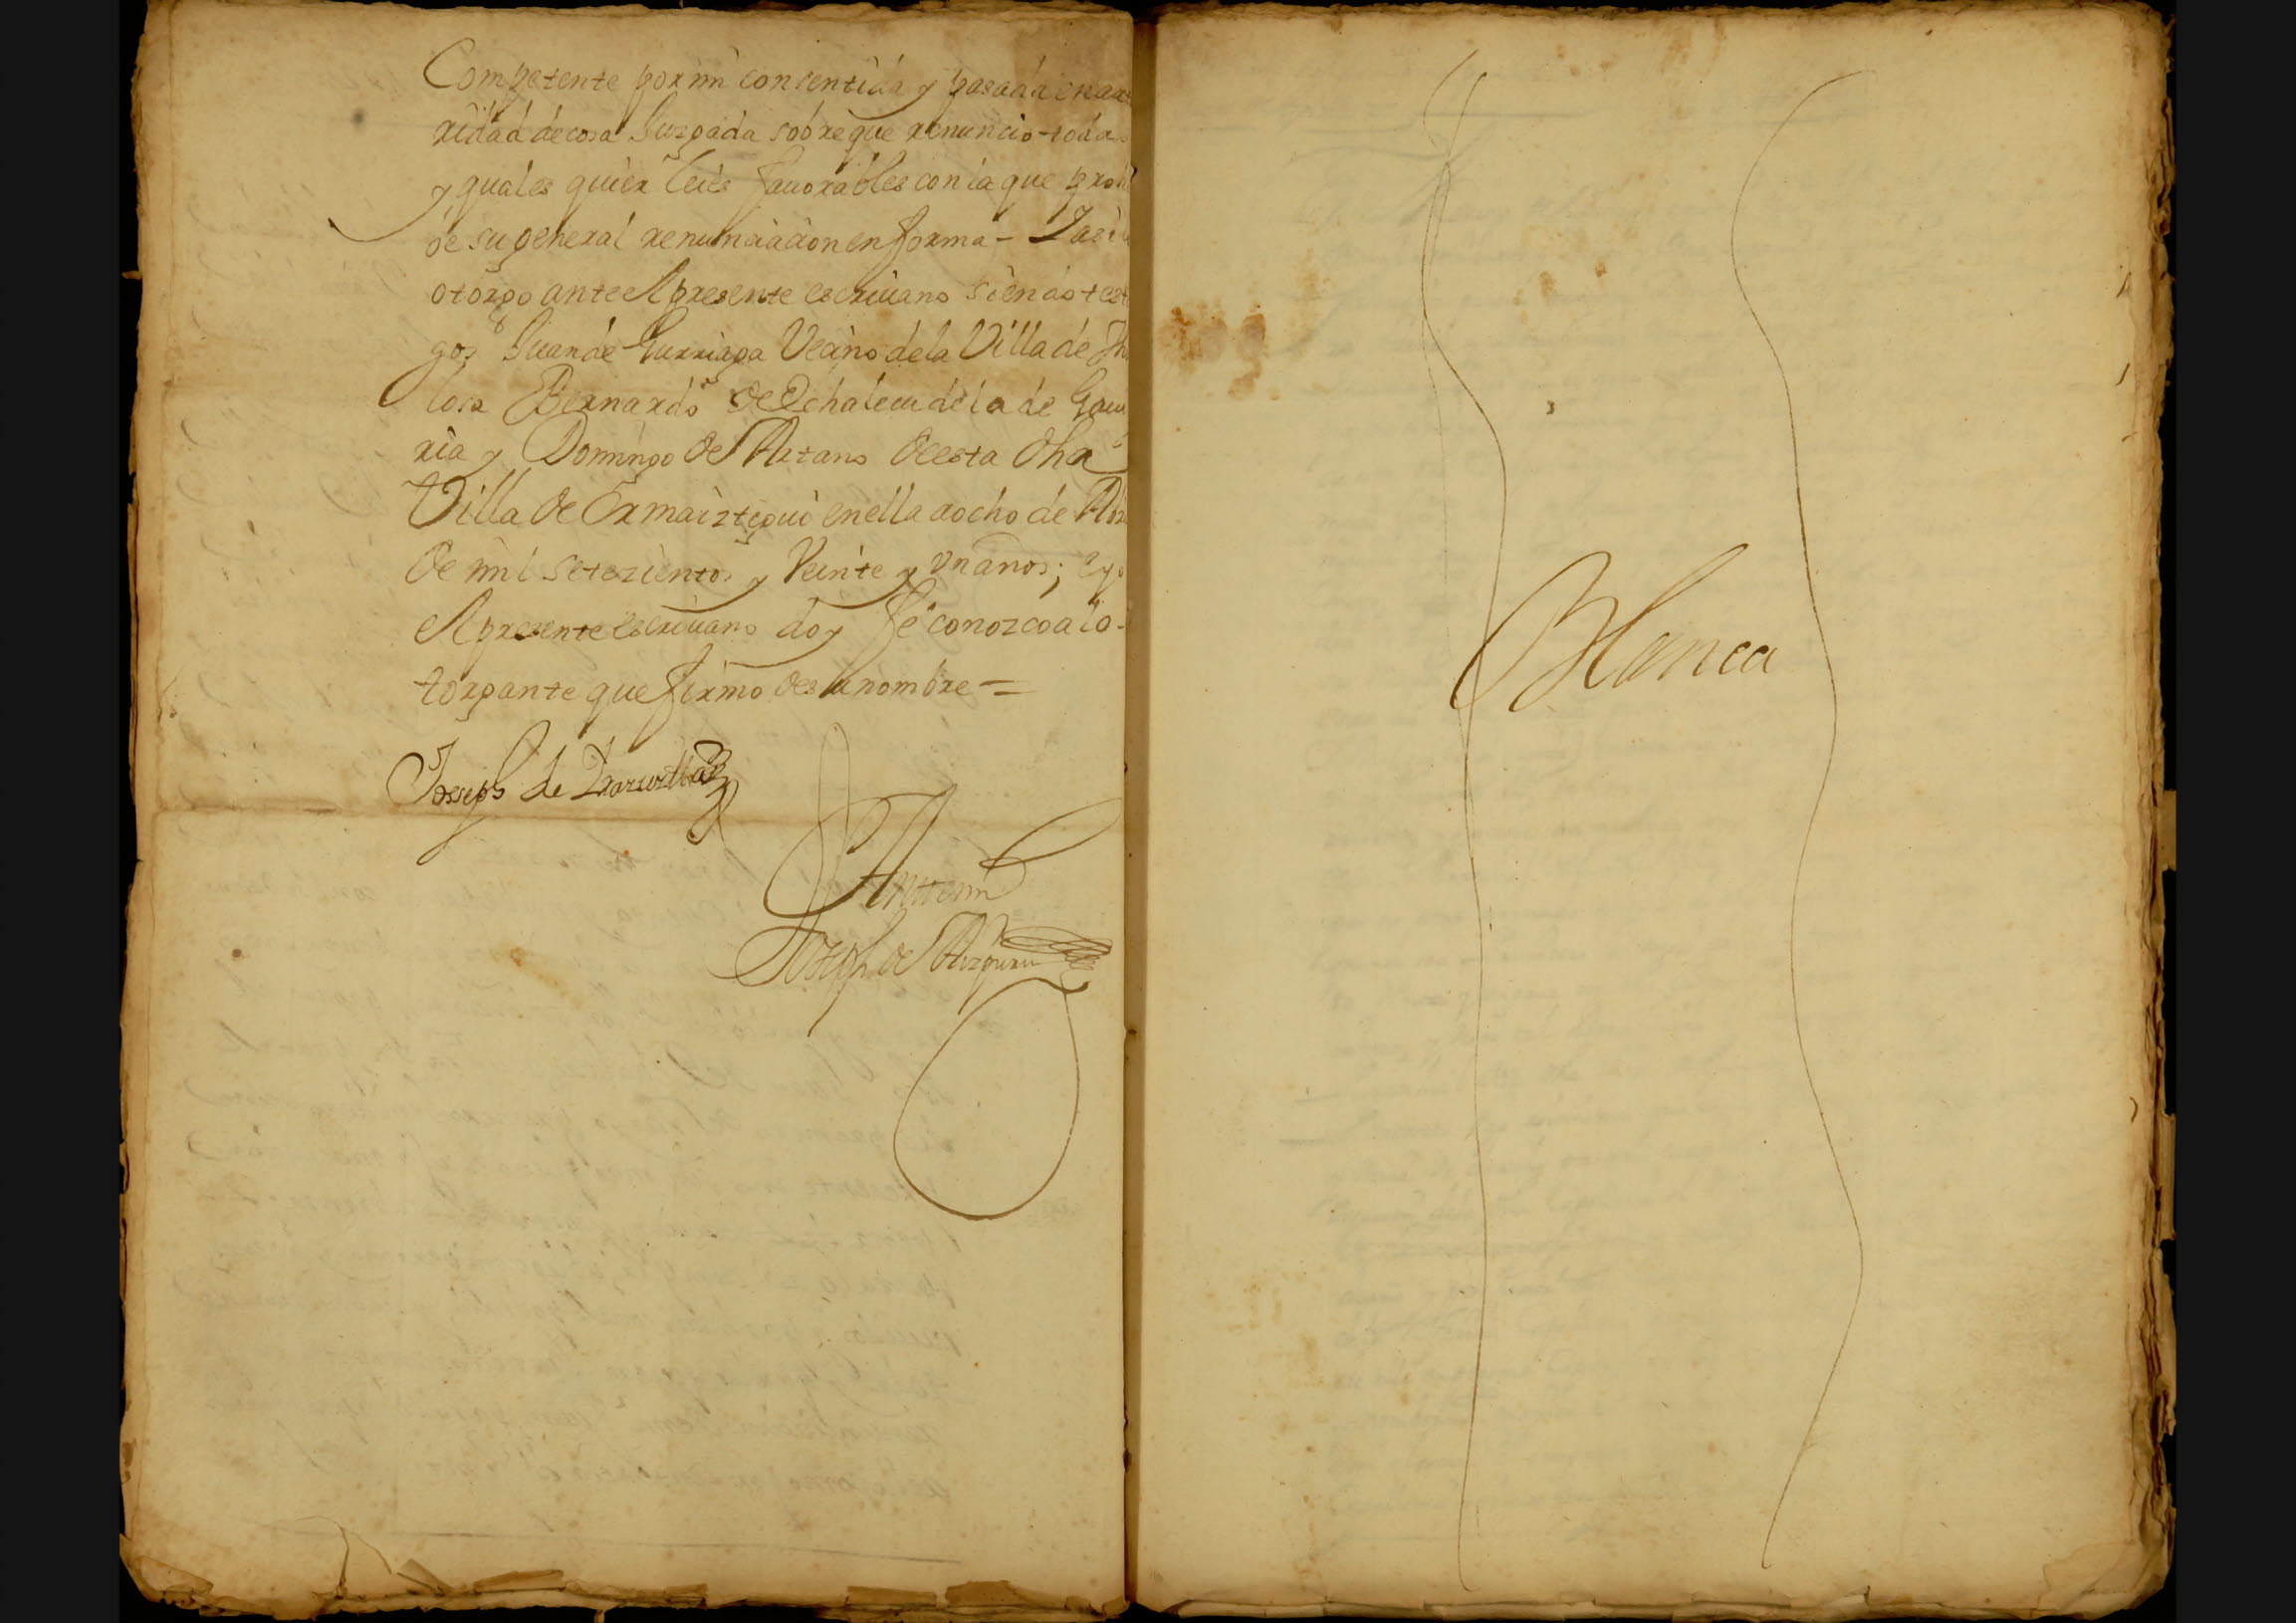 Competente por mi consentida y pasada en auto
ridad de cosa Juzgada sobre que renuncio todas
y quales quier leies favorables con la que prohi
be su general renunciacion en forma - Y asi lo
otorgo ante el presente escriuano siendo testi
gos Juan de Gurriaga Vecino de la Villa de Tho
losa Bernardo de Echalecu de la de Gaui
ria y Domingo de Artano de esta dha
Villa de Ormaiztegui en ella a ocho de Abril
de mil setezientos y Veinte y un años; e yo
el presente escriuano doy fe conozco al o-
torgante que firmo de su nombre =
Josseph de
Ante mi
Joseph de Aizpuru
Blanca